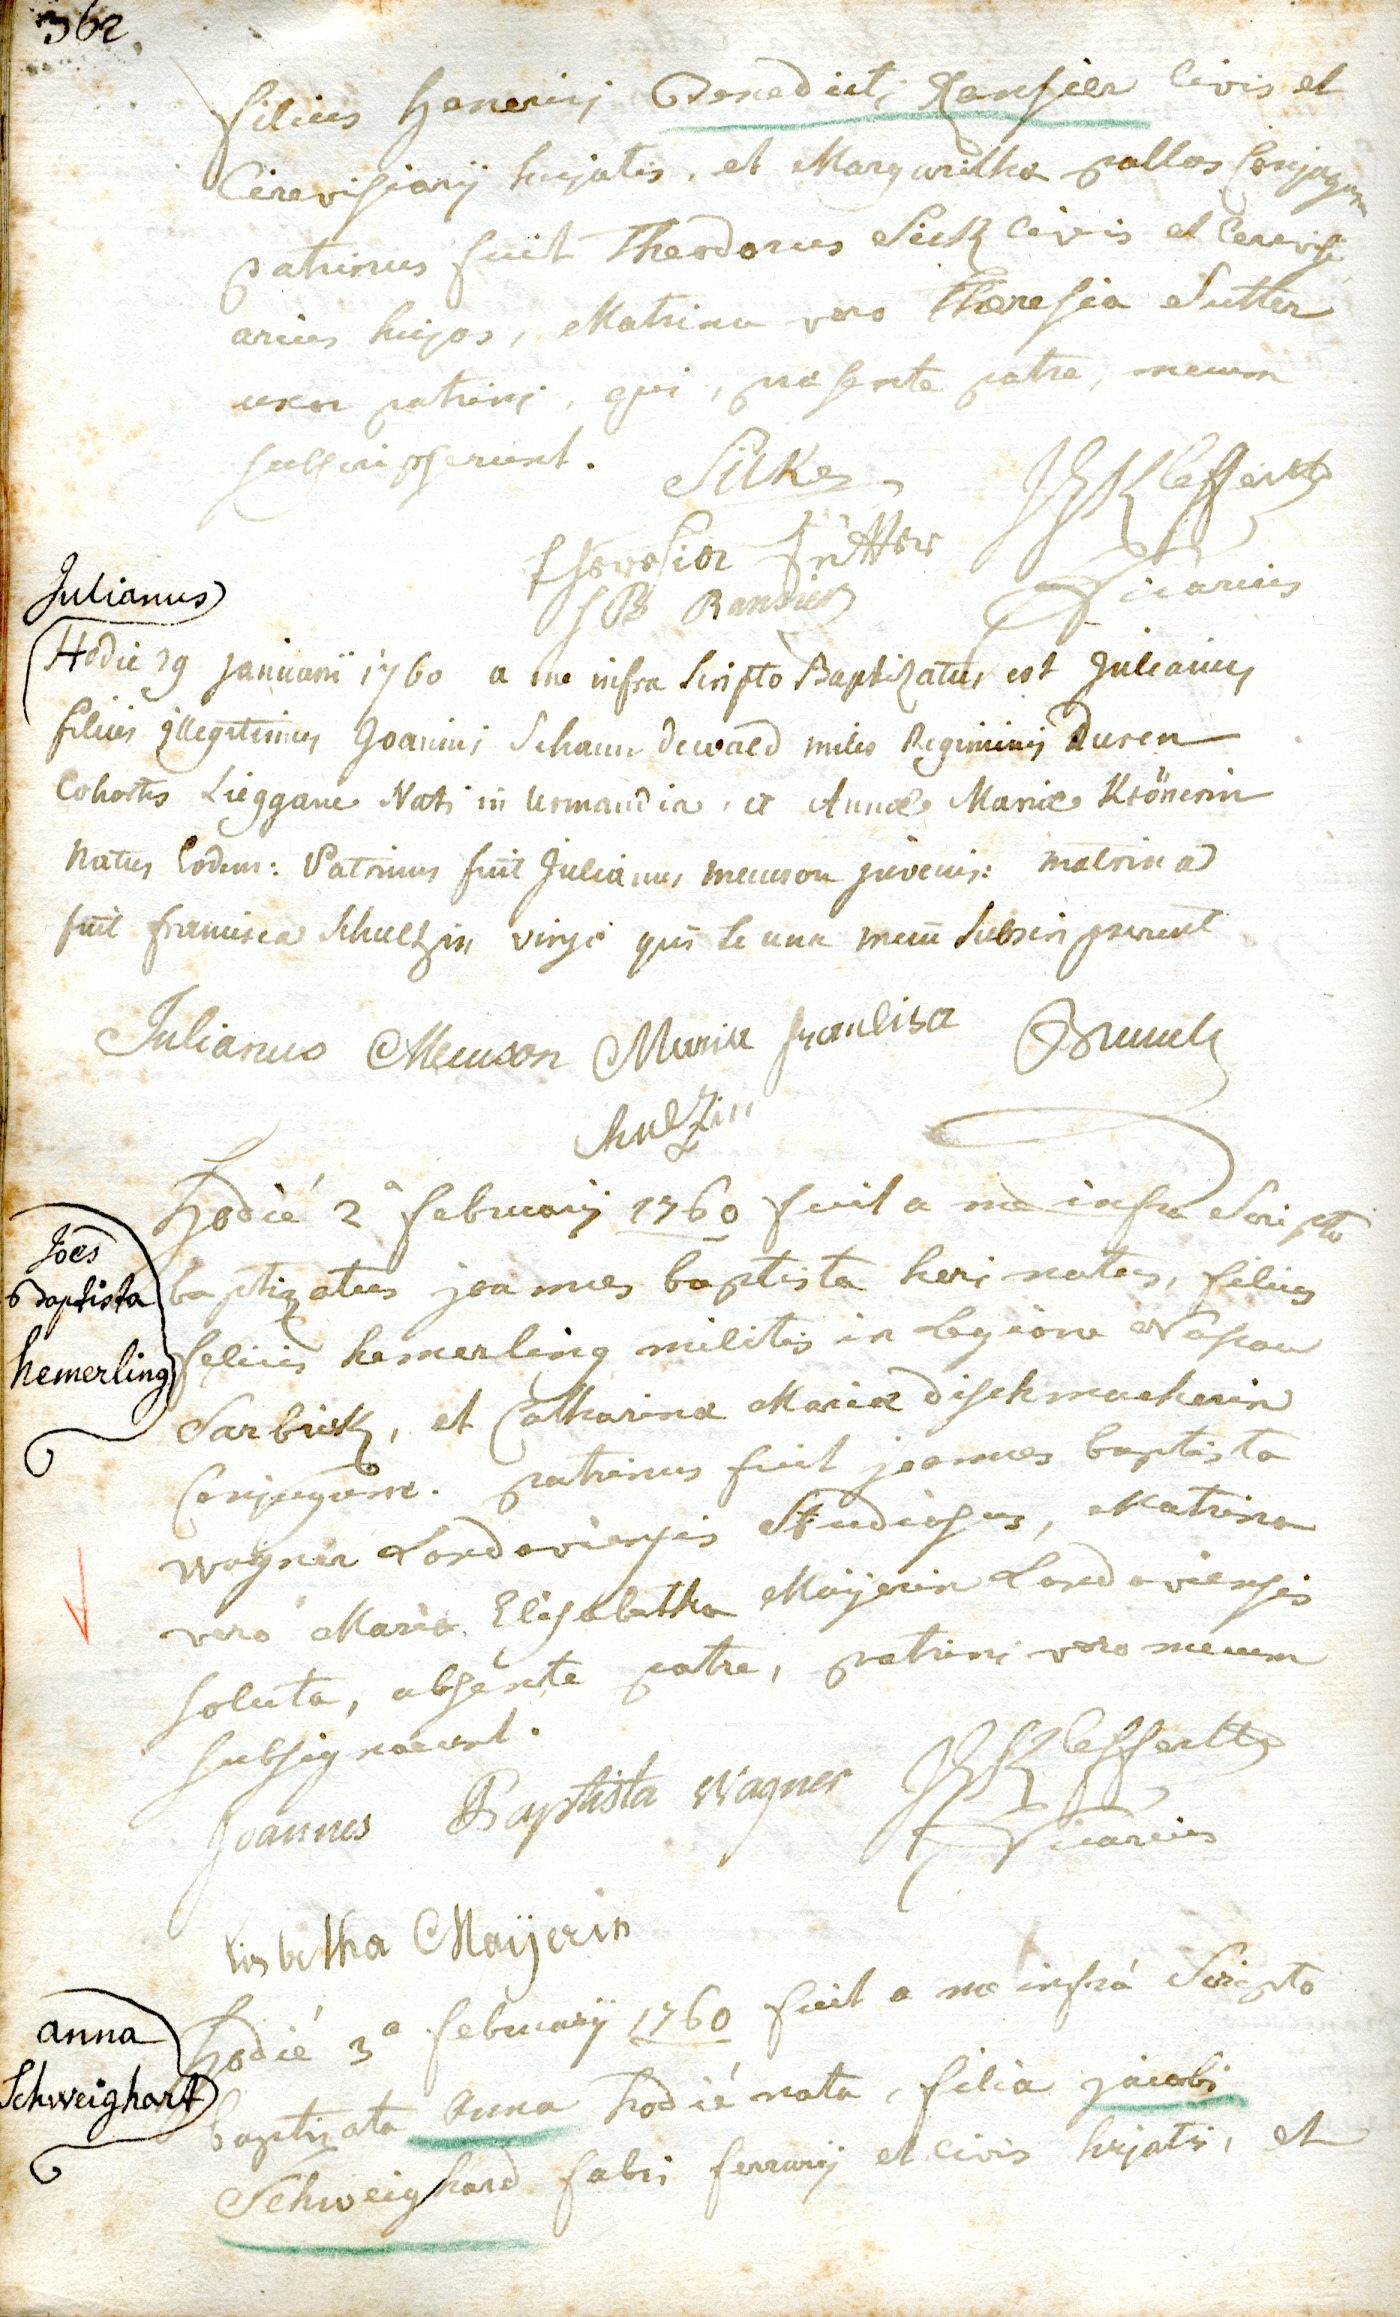 362
filius Henerici Benedicti Ransier Civis et
Cerevisiarij hujatis, et Margaritha pallas Conjugum
patrinus fuit Theodorus Sick Civis et Cerevisi
arius hujas, Matrina vero Theresia Sutter
uxor patrini, qui, præsente patre, mecum
subscripserunt.
Sicker
JJ Kleffertz
Theresia
Vicarius
Ransier
Julianus
Hodie 29 januarii 1760 a me infra scripto Baptizatus est Julianus
filius illegitimus Joannis Schaun dewald miles Regiminis Duren
Cohortis Nati in et Annæ Mariæ Krönerin
Natus Eodem: Patrinus fuit Julianus meuwson juvenis: matrina
fuit francisca Schultzin virgo qui se una mecum subscripserunt
Julianus Meuwson Maria francisca
Schulzin
hodié 2ª februarij 1760 fuit a me infra Scripto
Joës
Baptista
hemerling
baptizatus joannes baptista heri natus, filius
felicis hemerling militis in Legione Nassau
Sarbrick, et Catharina Maria dischmacherin
Conjugum. patrinus fuit joannes baptista
wagner Landaviensis Studiosus, Matrina
vero Maria Elisabetha Maÿerin Landaviensis
soluta, absente patre, patrini vero mecum
subsignarunt.
Joannes Baptista Wagner
JJ Kleffertz
Vicarius
lisbetha Maÿerin
hodié 3ª februarij 1760 fuit a me infrá Scripto
anna
Schweighart
baptizata Anna hodié nata filia jacobi
Schweighard fabri ferrarij et civis hujatis, et